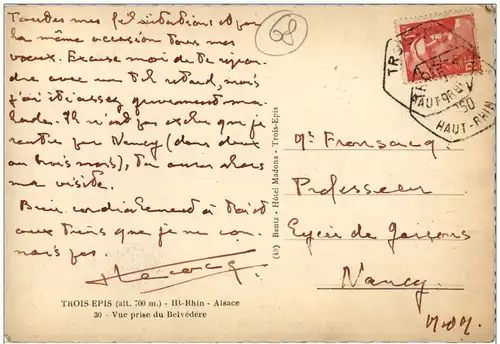 Toutes mes félicitations et par
la même occasion tous mes
vœux. Excuse moi de te répon
dre avec un tel retard, mais
j'ai été assez gravement ma
lade. Il n'est pas exclus que je
rentre par Nancy (dans deux
ou trois mois), tu auras alors
ma visite.
Bien cordialement à toi et
aux tiens que je ne con
nais pas.
TROIS-EPIS (alt. 700 m.) - Ht-Rhin - Alsace
30 - Vue prise du Belvédère
68
(49) Bentz - Hôtel Madona - Trois-Epis
HAUT-RHIN
Mr. Fransacq.
Professeur
Lycée de Garçons
Nancy.